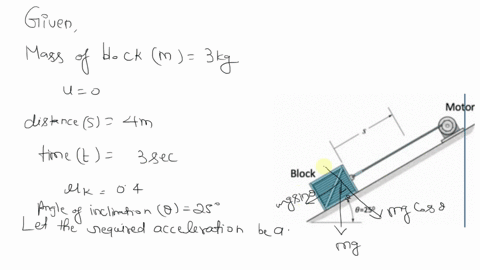 Given,
Mass of block (m) = 3kg
u = 0
distance (s) = 4m
time (t) = 3sec
μk = 0.4
Angle of inclination (θ) = 25°
Let the required acceleration be a.
Motor
s
Block
mgsinθ
θ=25°
mg cosθ
mg